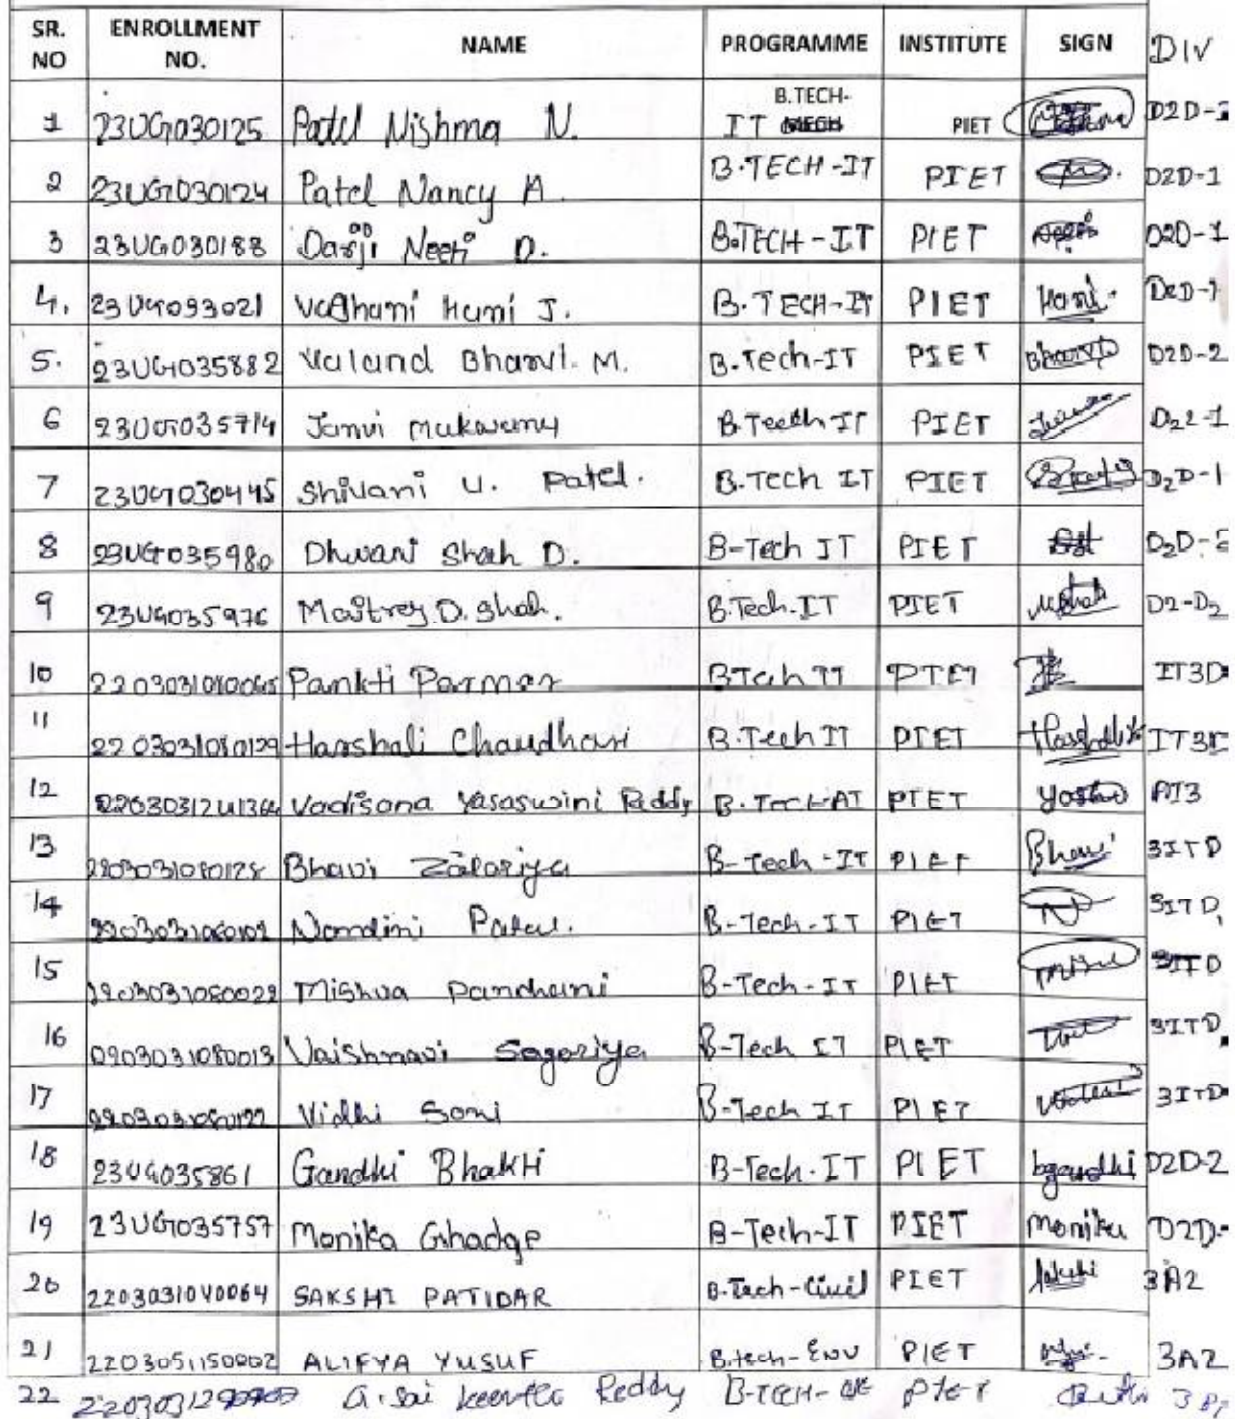 SR. NO ENROLLMENT NO. NAME PROGRAMME INSTITUTE SIGN DIV
1 23UG030125 Patel Nishma N. B.TECH- IT PIET
2 23UG030124 Patel Nancy A. B.TECH-IT PIET D2D-1
3 23UG030188 Darji Neeti D. B.TECH-IT PIET D2D-1
4. 23UG093021 Vaghani Hemi J. B.TECH-IT PIET D2D-1
5. 23UG035882 Valand Bhanvi. M. B.Tech-IT PIET D2D-2
6 23UG035714 Janvi B.Teech IT PIET D22-1
7 23UG030445 Shivani U. Patel. B.Tech IT PIET D2D-1
8 23UG035980 Dhwani Shah D. B-Tech IT PIET
9 23UG035976 Maitrey D. Shah. B.Tech.IT PIET D2-D2
10 Pankti Parmar BTech IT PIET IT3D
11 2203031080129 Harshali Chaudhari B.Tech IT PIET
12 Vadisana Yasaswini Reddy PIET AI3
13 Bhavi Zalariya B-Tech-IT PIET Bhavi 3ITD
14 Nandini Patel. B-Tech-IT PIET 3ITD
15 Mishva Pandhani B-Tech-IT PIET 3ITD
16 Vaishnavi Sagariya B-Tech IT PIET 3ITD
17 Vidhi Soni B-Tech IT PIET 3ITD
18 23UG035861 Gandhi Bhakti B-Tech.IT PIET bgandhi D2D-2
19 23UG035757 Monika Ghadge B-Tech-IT PIET Monika
20 2203031040064 SAKSHI PATIDAR B.Tech-Civil PIET Sakshi 3A2
21 2203051150002 ALIFYA YUSUF B.tech-Env PIET 3A2
22 G. Sai Reddy PIET